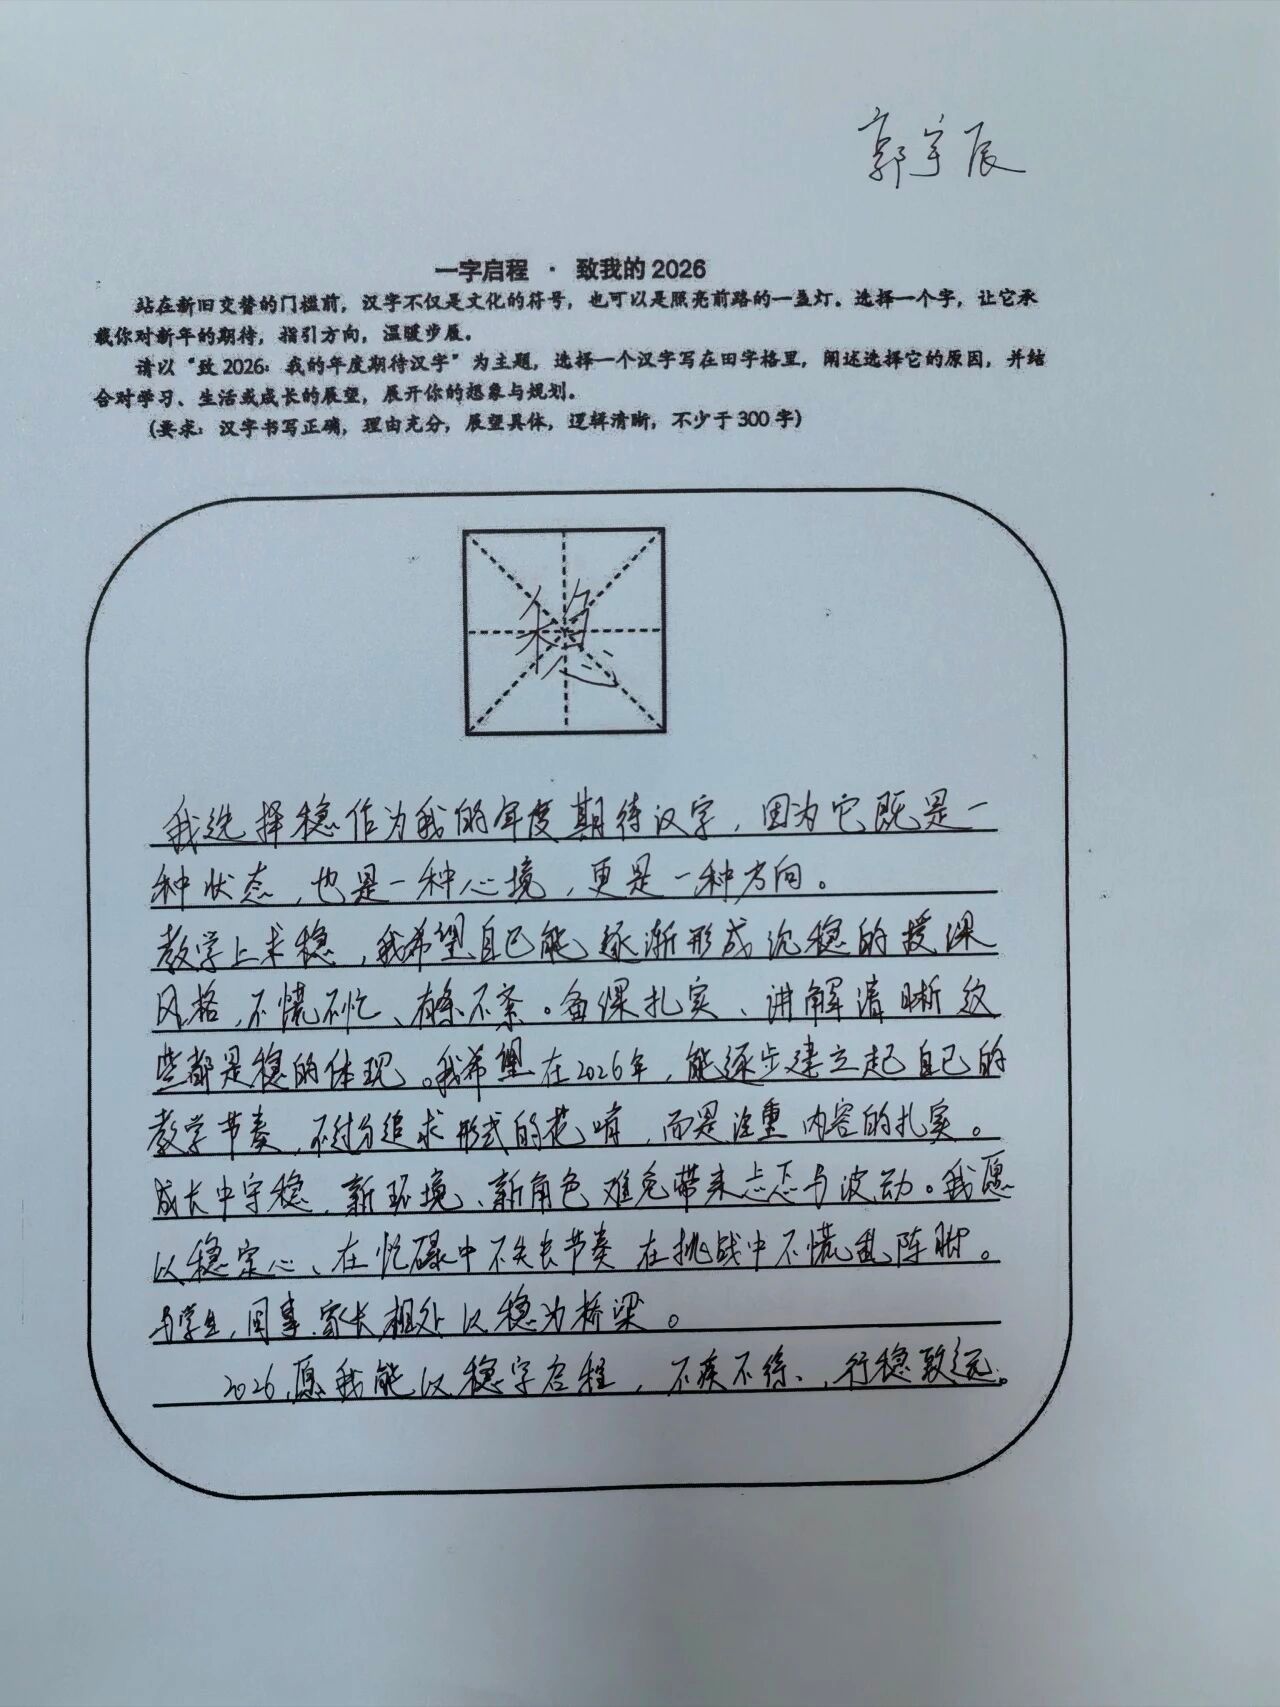 郭宇辰
一字启程 · 致我的2026
站在新旧交替的门槛前，汉字不仅是文化的符号，也可以是照亮前路的一盏灯。选择一个字，让它承
载你对新年的期待，指引方向，温暖步履。
请以“致2026：我的年度期待汉字”为主题，选择一个汉字写在田字格里，阐述选择它的原因，并结
合对学习、生活或成长的展望，展开你的想象与规划。
（要求：汉字书写正确，理由充分，展望具体，逻辑清晰，不少于300字）
稳
我选择稳作为我的年度期待汉字，因为它既是一
种状态，也是一种心境，更是一种方向。
教学上求稳，我希望自己能逐渐形成沉稳的授课
风格，不慌不忙、有条不紊。备课扎实、讲解清晰这
些都是稳的体现。我希望在2026年，能逐步建立起自己的
教学节奏，不过分追求形式的花哨，而是注重内容的扎实。
成长中守稳，新环境、新角色难免带来忐忑与波动。我愿
以稳定心、在忙碌中不失去节奏在挑战中不慌乱阵脚。
与学生，同事、家长相处以稳为桥梁。
2026，愿我能以稳字启程，不疾不徐、，行稳致远。